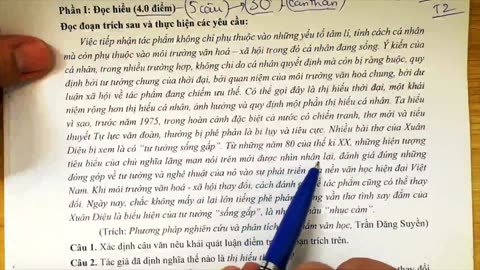 Phần I: Đọc hiểu (4.0 điểm) 5 câu 30' cẩn thận
I2
Đọc đoạn trích sau và thực hiện các yêu cầu:
Việc tiếp nhận tác phẩm không chỉ phụ thuộc vào những yếu tố tâm lí, tính cách cá nhân
mà còn phụ thuộc vào môi trường văn hoá – xã hội trong đó cá nhân đang sống. Ý kiến của
cá nhân, trong nhiều trường hợp, không chỉ do cá nhân quyết định mà còn bị ràng buộc, quy
định bởi tư tưởng chung của thời đại, bởi quan niệm của môi trường văn hoá chung, bởi dư
luận xã hội về tác phẩm đang chiếm ưu thế. Có thể gọi đây là thị hiếu thời đại, một khái
niệm rộng hơn thị hiếu cá nhân, ảnh hưởng và quy định một phần thị hiếu cá nhân. Ta hiểu
vì sao, trước năm 1975, trong hoàn cảnh đặc biệt cả nước có chiến tranh, thơ mới và tiểu
thuyết Tự lực văn đoàn, thường bị phê phán là bi lụy và tiêu cực. Nhiều bài thơ của Xuân
Diệu bị xem là có “tư tưởng sống gấp”. Từ những năm 80 của thế kỉ XX, những hiện tượng
tiêu biểu của chủ nghĩa lãng mạn nói trên mới được nhìn nhận lại, đánh giá đúng những
đóng góp về tư tưởng và nghệ thuật của nó vào sự phát triển nền văn học hiện đại Việt
Nam. Khi môi trường văn hoá - xã hội thay đổi, cách đánh tác phẩm cũng có thể thay
đổi. Ngày nay, chắc không mấy ai lại lớn tiếng phê phán vần thơ tình say đắm của
Xuân Diệu là biểu hiện của tư tưởng “sống gấp”, là “nhục cảm”.
(Trích: Phương pháp nghiên cứu và phân tích văn học, Trần Đăng Suyền)
Câu 1. Xác định câu văn nêu khái quát luận điểm đoạn trích trên.
Câu 2. Tác giả đã định nghĩa thế nào là thị hiếu